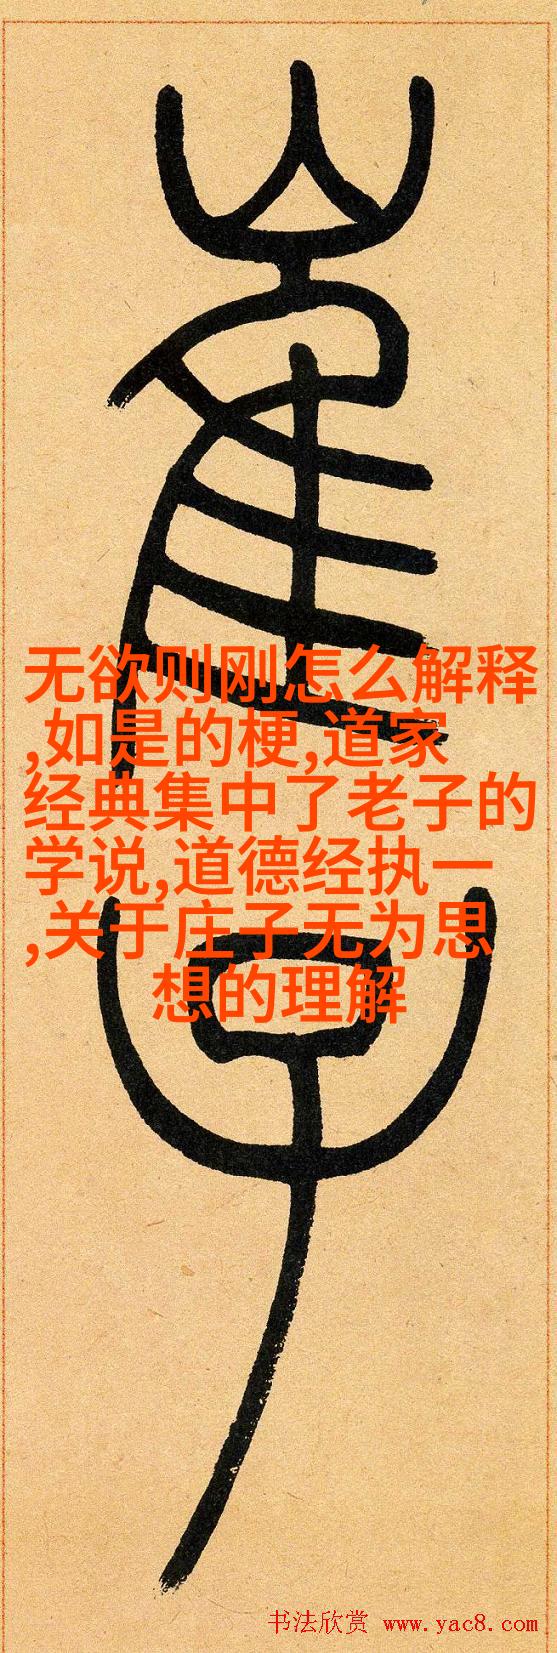 无欲则刚怎么解释
,如是的梗,道家
经典集中了老子的
学说,道德经执一
,关于庄子无为思
想的理解
书法欣赏 www.yac8.com